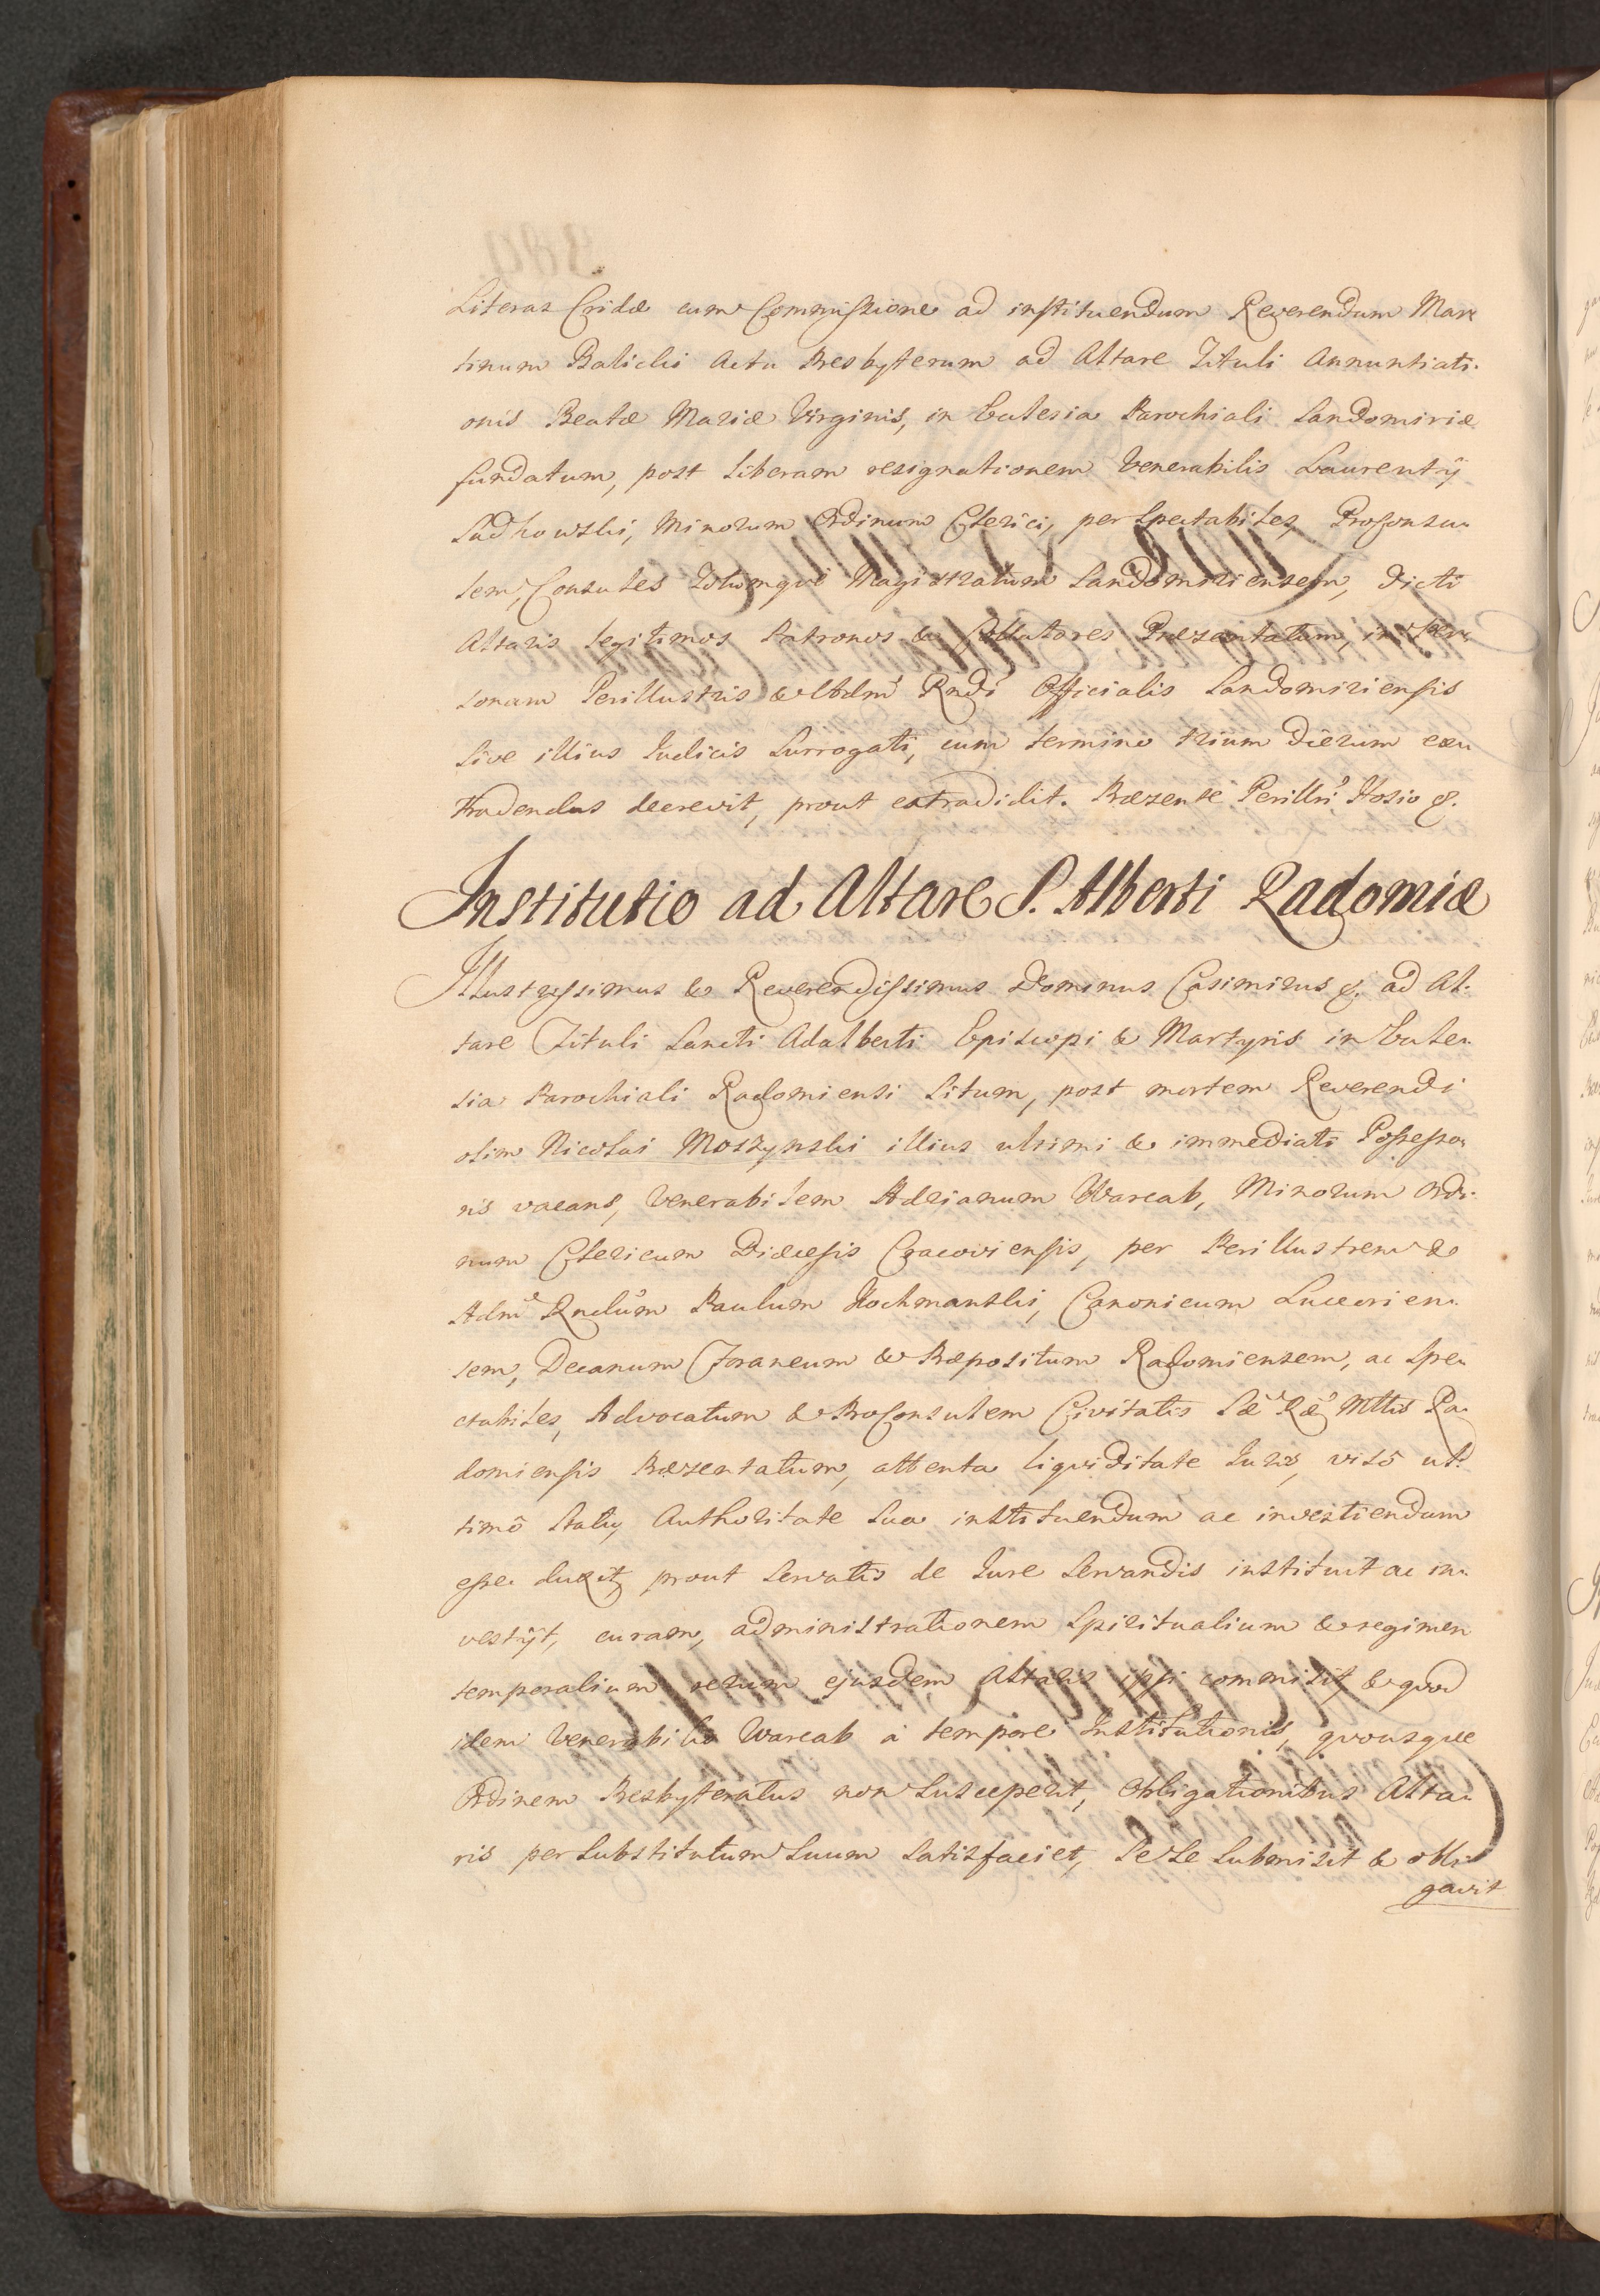 Literas Cridæ cum Commissione ad instituendum Reverendum Mar-
tinum Balicki Actu Presbyterum ad Altare Tituli Annuntiati-
onis Beatæ Mariæ Virginis, in Ecclesia Parochiali Sandomiriæ
fundatum, post liberam resignationem Venerabilis Laurentij
Sadkowski, Minorum Ordinum Clerici, per Spectabiles, Proconsu-
lem, Consules Totumque Magistratum Sandomiriensem, dicti
Altaris legitimos Patronos & Collatores Præsentatum, in Per-
sonam Perillustris & Adm Rndi Officialis Sandomiriensis
sive illius Judicis Surrogati, cum termino trium dierum ex-
tradendas decrevit, prout extradidit. Præsente Perillri Hosio &.
Institutio ad Altare S. Alberti Radomiæ
Illustrissimus & Reverendissimus Dominus Casimirus &. ad Al-
tare Tituli Sancti Adalberti Episcopi & Martyris in Eccle-
sia Parochiali Radomiensi situm, post mortem Reverendi
olim Nicolai Moszynski illius ultimi & immediati Possesso-
ris vacans, Venerabilem Adrianum Warcab, Minorum Ordi-
num Clericum Diæcesis Cracoviensis, per Perillustrem &
Adm Rndum Paulum Kochmanski, Canonicum Luceorien-
sem, Decanum Foraneum & Præpositum Radomiensem, ac Spe-
ctabiles, Advocatum & Proconsulem Civitatis Sæ Ræ Mttis Ra-
domiensis Præsentatum, attenta liquiditate Juris, visô ul-
timô statu, Authoritate sua instituendum ac investiendum
esse duxit, prout servatis de Jure servandis instituit ac in-
vestijt, curam, administrationem Spiritualium & regimen
temporalium rerum ejusdem Altaris ipsi commisit, & quod
idem Venerabilis Warcab a tempore Institutionis, quousque
Ordinem Presbyteratus non susceperit, Obligationibus Alta-
ris per Substitutum Suum satisfaciet, Sese Submisit & obli-
gavit